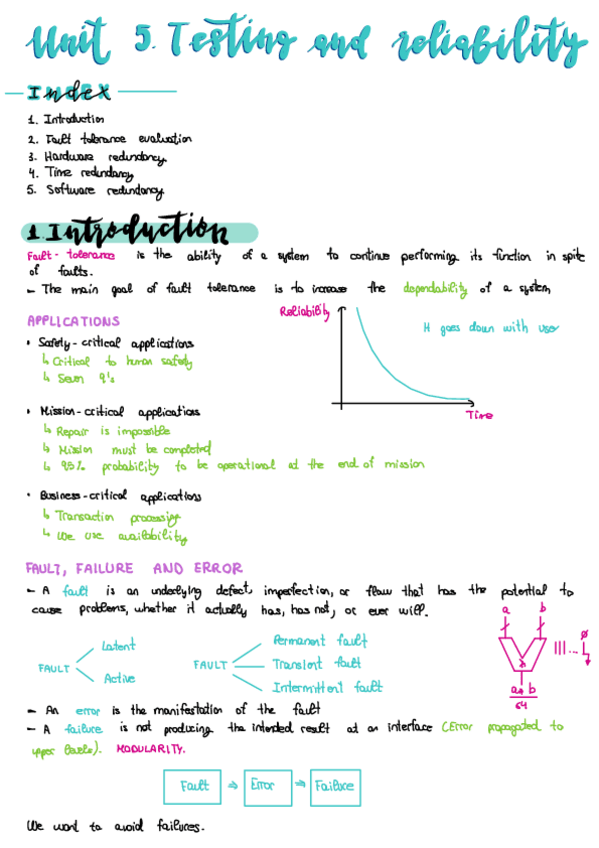 Unit 5. Testing and reliability
Index
1. Introduction
2. Fault tolerance evaluation
3. Hardware redundancy
4. Time redundancy
5. Software redundancy
1. Introduction
Fault-tolerance is the ability of a system to continue performing its function in spite
of faults.
- The main goal of fault tolerance is to increase the dependability of a system
Reliability
It goes down with user
Time
APPLICATIONS
• Safety-critical applications
↳ Critical to human safety
↳ Seven 9's
• Mission-critical applications
↳ Repair is impossible
↳ Mission must be completed
↳ 95% probability to be operational at the end of mission
• Business-critical applications
↳ Transaction processing
↳ We use availability
FAULT, FAILURE AND ERROR
- A fault is an underlying defect, imperfection, or flaw that has the potential to
cause problems, whether it actually has, has not, or ever will.
a b
a+b
64
FAULT
Latent
Active
FAULT
Permanent fault
Transient fault
Intermittent fault
- An error is the manifestation of the fault
- A failure is not producing the intended result at an interface (Error propagated to
upper levels). MODULARITY.
Fault ⇒ Error ⇒ Failure
We want to avoid failures.